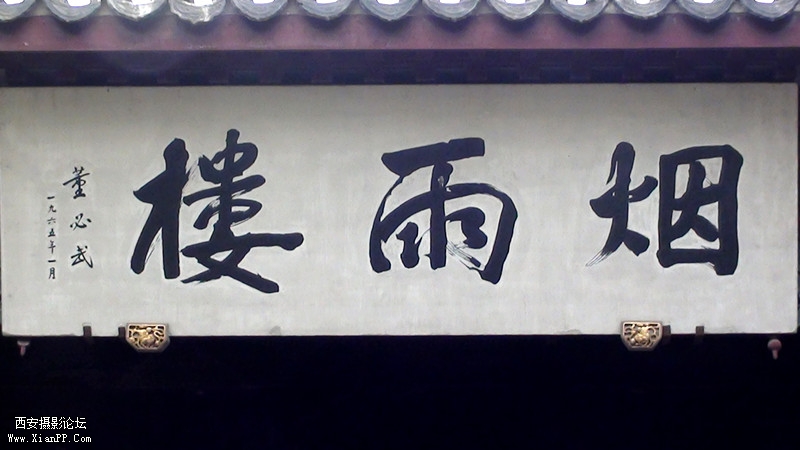 烟雨樓
董必武
一九六五年一月
西安摄影论坛
Www.XianPP.Com